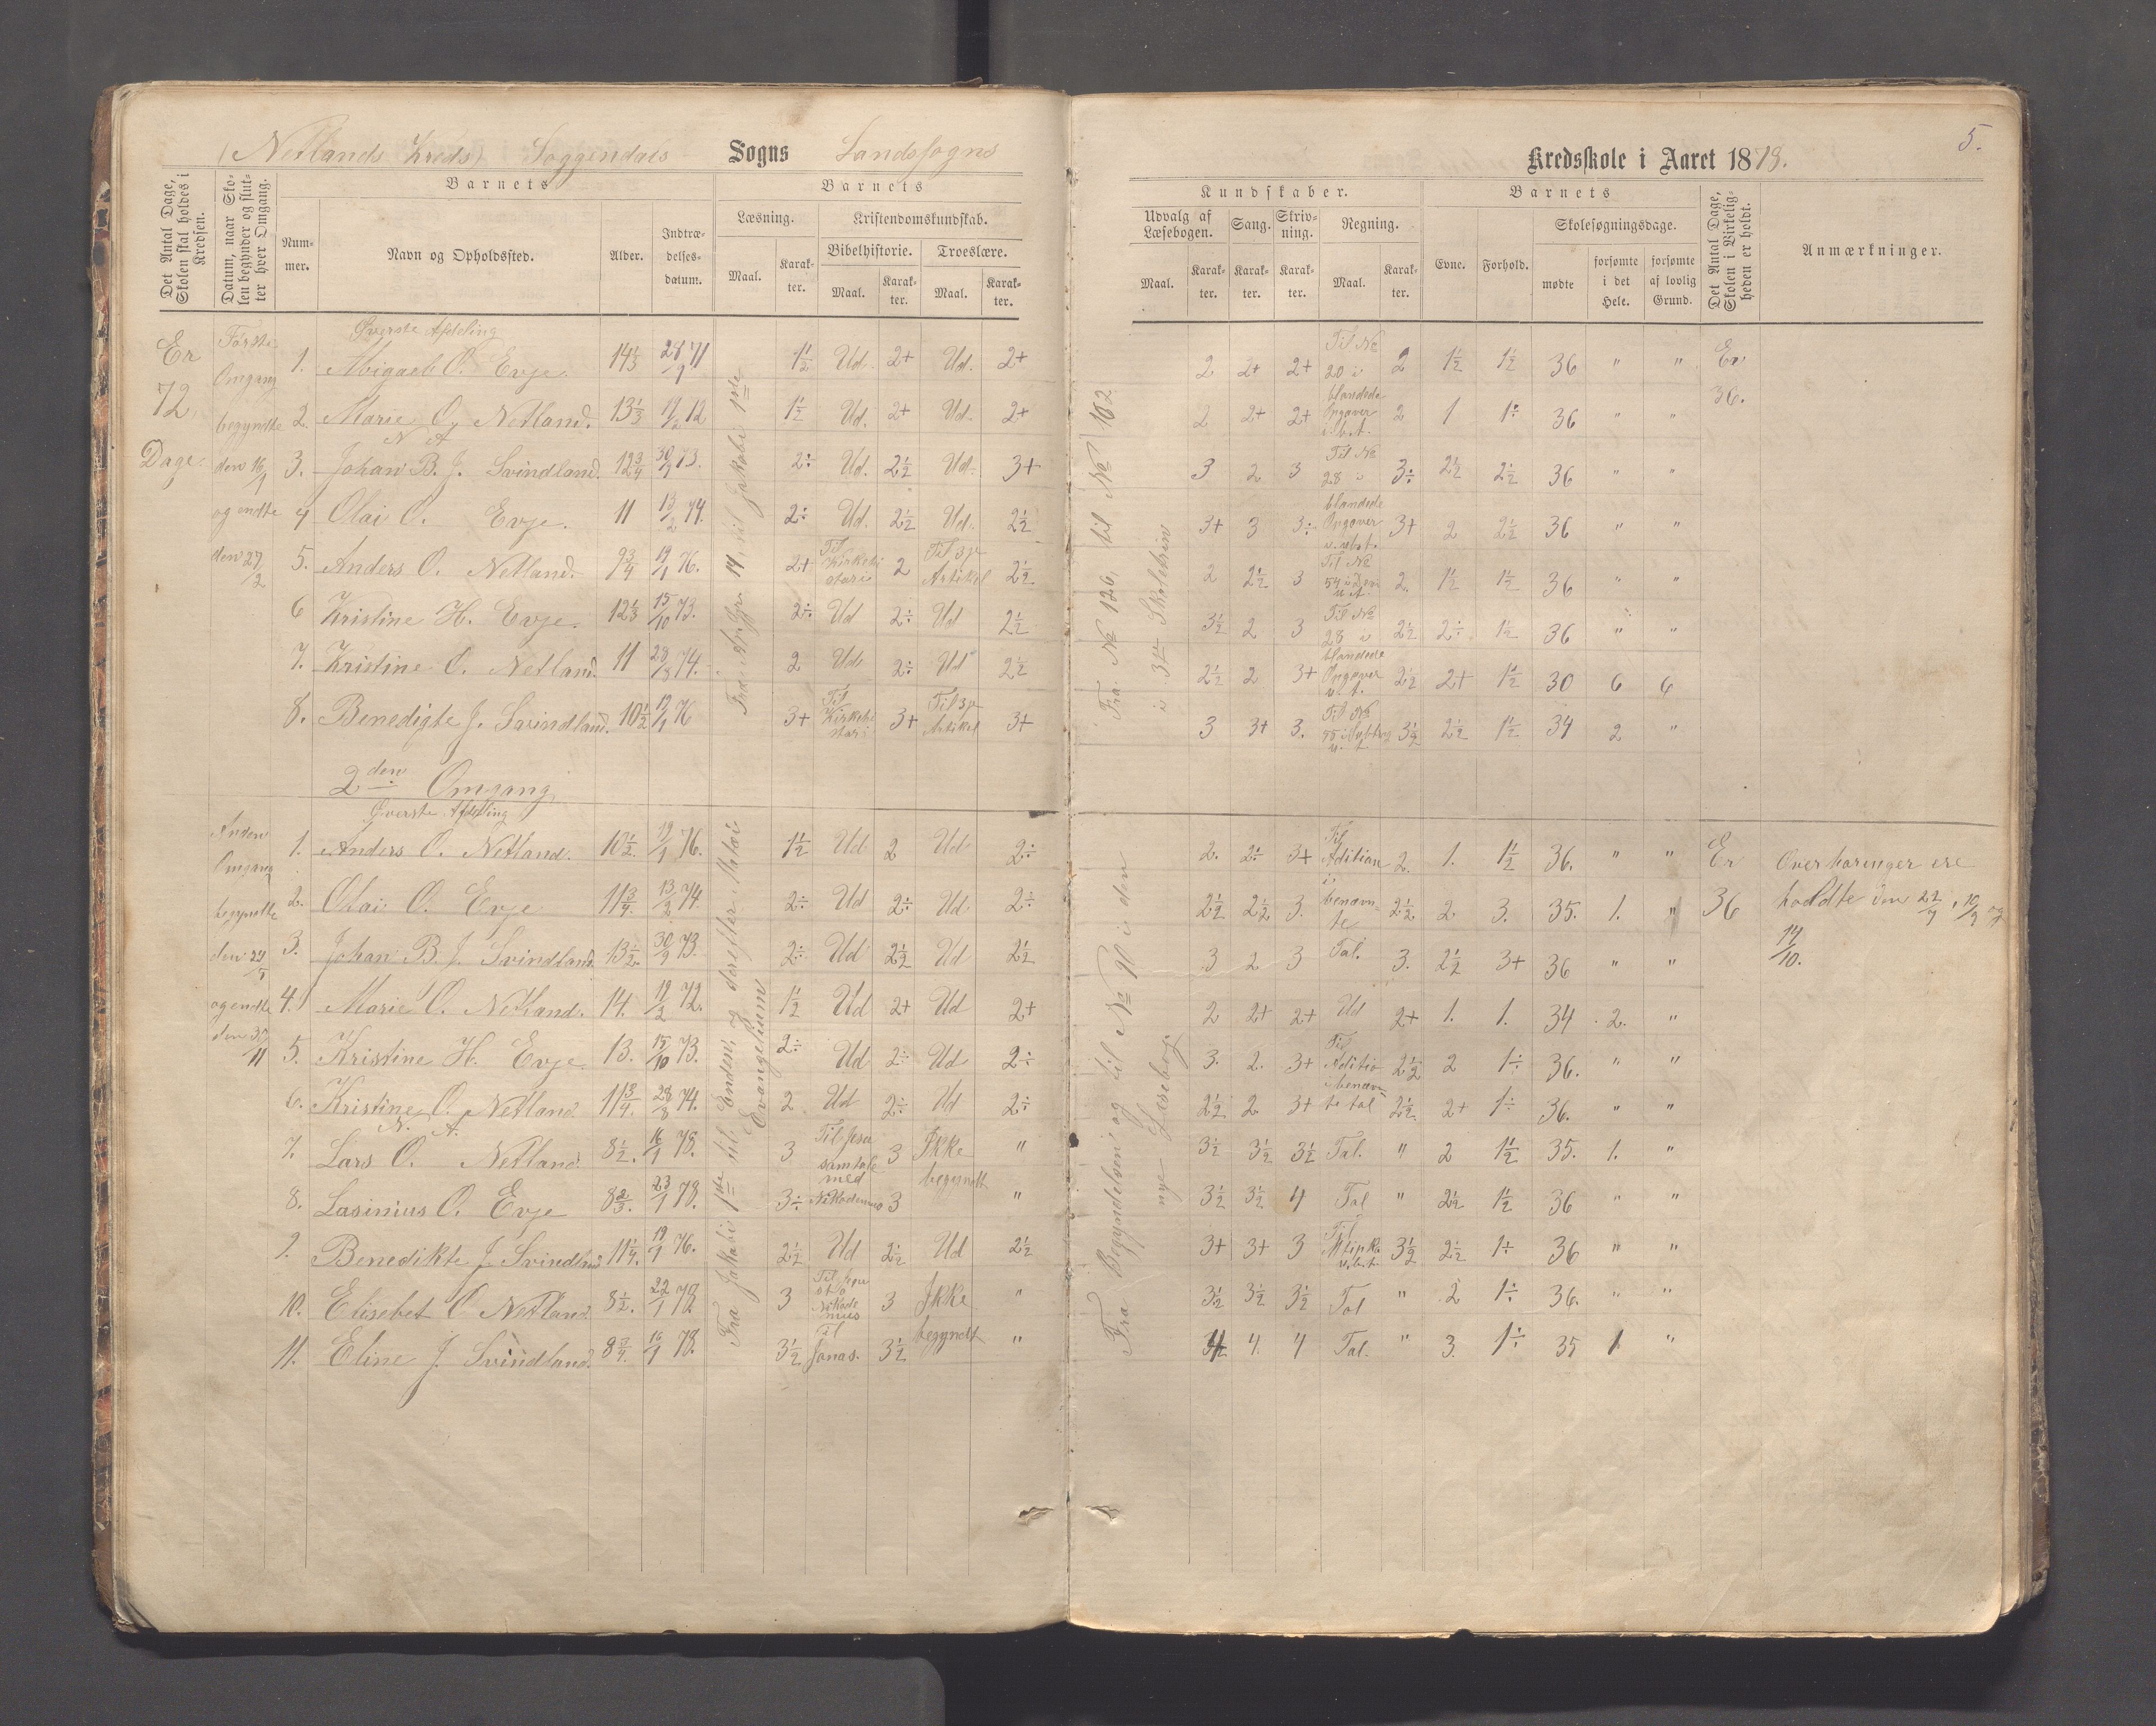 (Netlands Kreds) Soggendals Sogns Landssogns
Kredsskole i Aaret 1878.
5.
Det Antal Dage, Skolen skal holdes i Kredsen.
Datum, naar Skolen begynder og slutter hver Omgang.
Barnets
Nummer.
Navn og Opholdssted.
Alder.
Indtrædelsesdatum.
Barnets
Læsning.
Maal.
Karakter.
Kristendomskundskab.
Bibelhistorie.
Troeslære.
Maal.
Karakter.
Maal.
Karakter.
Kundskaber.
Udvalg af Læsebogen.
Sang.
Skrivning.
Regning.
Maal.
Karakter.
Karakter.
Karakter.
Maal.
Karakter.
Barnets
Evne.
Forhold.
Skolesøgningsdage.
mødte
forsømte i det Hele.
forsømte af lovlig Grund.
Det Antal Dage, Skolen i Virkeligheden er holdt.
Anmærkninger.
Er 72 Dage.
Første Omgang begyndte den 16/1 og endte den 27/2
Øverste Afdeling
1. Abigael O. Evje 14 1/3 28/9 71 1 1/2 Ud. 2+ Ud. 2+ 2 2+ 2+ 2 1 1/2 1 1/2 36 " "
2. Marie O. Netland. 13 1/3 19/2 72 1 1/2 Ud. 2+ Ud. 2+ 2 2+ 2+ 2 1 1÷ 36 " "
N. A.
3. Johan B. J. Svindland. 12 3/4 30/9 73. 2÷ Ud. 2 1/2 Ud. 3+ 3 2 3 3÷ 2 1/2 2 1/2 36 " "
4 Olai O. Evje. 11 13/2 74. 2÷ Ud. 2 1/2 Ud. 2 1/2 3+ 3 3÷ 3+ 2 2 1/2 36 " "
5. Anders O. Netland. 9 3/4 19/1 76. 2+ Til Kirkehistorie 2 Til 3je Artikel 2 1/2 2 2 1/2 3 2. 1 1/2 1 1/2 36 " "
6 Kristine H. Evje. 12 1/3 15/10 73. 2÷ Ud 2÷ Ud 2 1/2 3 1/2 2 3 2 1/2 2÷ 1 1/2 36 " "
7. Kristine O. Netland. 11 28/8 74. 2 Ud 2÷ Ud 2 1/2 2 1/2 2 3+ 2 1/2 2+ 1 1/2 30 6 6
8. Benedigte J. Svindland. 10 1/2 19/1 76 3+ 3+ Til 3je Artikel 3+ 3 3+ 3. 3 1/2 2 1/2 1 1/2 34 2 "
Til No 20 i blandede Opgaver
Til No 28 i blandede Opgaver
Til No 28 i blandede Opgaver
Er 36.
Fra No 126, til No 162 i 3die Skoletrin
2den Omgang
Øverste Afdeling
Anden Omgang begyndte og endte
1. Anders O. Netland. 10 1/2. 19/1 76. 1 1/2 Ud 2 Ud 2÷ 2. 2÷ 3+ 2. 1. 1 1/2 36. " "
2. Olai O. Evje 11 3/4. 13/2 74. 2÷ Ud 2÷ Ud 2÷ 2 1/2 2 1/2 3. 2 1/2 2 3. 35. 1. "
3. Johan B. J. Svindland. 13 1/2. 30/9 73. 2÷ Ud 2 1/2 Ud 2 1/2 3 2 3 3. 2 1/2 3+ 36 " "
4. Marie O. Netland. 14. 19/2 72. 1 1/2 Ud 2+ Ud 2+ 2 2+ 2+ Ud 2+ 1. 1. 34 2. "
5. Kristine H. Evje 13. 15/10 73. 2÷ Ud 2÷ Ud 2÷ 3. 2. 3+ 2 1/2 2 1÷ 36. " "
6. Kristine O. Netland. 11 3/4. 28/8 74. 2 Ud 2÷ Ud 2÷ 2 1/2 2 3+ 2 1/2 2+ 1÷ 36. " "
N. A.
7. Lars O. Netland. 8 1/2. 16/1 78. 3 Til Jesu samtale med 3 Ikke begyndt " 3 1/2 3 1/2 3 1/2 Tal. " 2 1 1/2 35. 1. "
8. Lasinius O. Evje 8 2/3. 23/1 78. 3÷ Nikodemus 3 " 3 1/2 3 1/2 4 Tal " 2 1/2 1 1/2 36 " "
9. Benedikte J. Svindland 11 1/4. 19/1 76. 2 1/2 Ud 2 1/2 Ud 2 1/2 3+ 3+ 3 3 1/2 2 1/2 1÷ 36 " "
10. Elisebet O. Netland. 8 1/2. 22/1 78 3 3 Ikke begyndt " 3 1/2 3 1/2 3 1/2 Tal " 2 1÷ 36. " "
11. Eline J. Svindland. 8 3/4. 16/1 78. 3 1/2 Til Jonas. 3 1/2 " 4 4. 4 Tal. " 3. 1÷ 35 1 "
Fra Jakobi 1ste til Enden, og derefter Matæi Evangelium
Fra Begyndelsen og til No 90 i den nye Læsebog.
Er 36
Overhøringer ere holdte den 22/7, 10/9 og 17/10.